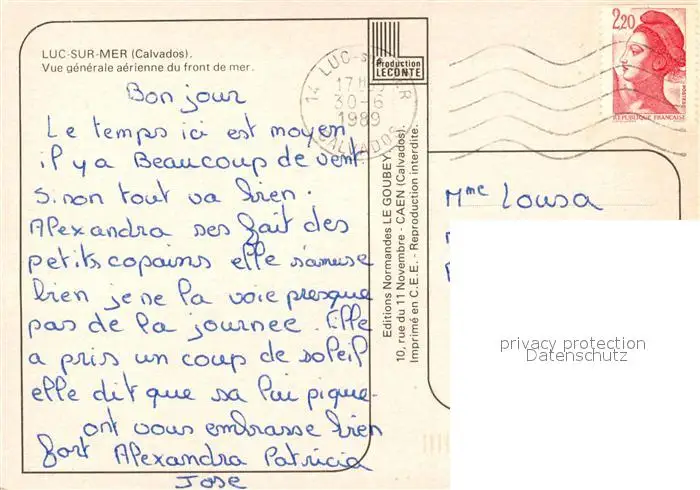 LUC-SUR-MER (Calvados).
Vue générale aérienne du front de mer.
Bonjour
Le temps ici est moyen
il y a Beaucoup de vent
sinon tout va bien.
Alexandra ses fait des
petits copains elle s'amuse
bien je ne la voie presque
pas de la journee. Elle
a pris un coup de soleil
elle dit que sa lui pique.
ont vous embrasse bien
fort Alexandra Patricia
Jose
Production
LECONTE
14 LUC-SUR-MER
17H
30-6
1989
CALVADOS
2,20
REPUBLIQUE FRANÇAISE
POSTES
Editions Normandes LE GOUBEY
10, rue du 11 Novembre - CAEN (Calvados).
Imprimé en C.E.E. - Reproduction interdite.
Mme Lousa
privacy protection
Datenschutz